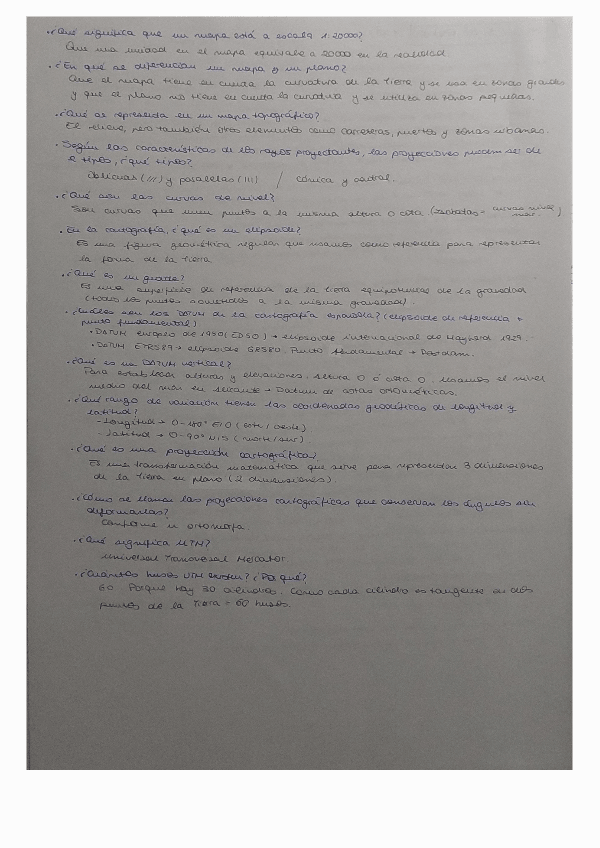 ·¿Qué significa que un mapa está a escala 1:20000?
Que una unidad en el mapa equivale a 20000 en la realidad.
·¿En qué se diferencian un mapa y un plano?
Que el mapa tiene en cuenta la curvatura de la tierra y se usa en zonas grandes
y que el plano no tiene en cuenta la curvatura y se utiliza en zonas pequeñas.
·¿Qué se representa en un mapa topográfico?
El relieve, pero también otros elementos como carreteras, puertos y zonas urbanas.
·Según las características de los rayos proyectantes, las proyecciones pueden ser de
2 tipos, ¿qué tipos?
oblicuas (///) y paralelas (|||) / cónica y
·¿Qué son las curvas de nivel?
Son curvas que unen puntos a la misma altura o cota (Isobatas = curvas nivel
mar. )
·En la cartografía, ¿qué es un elipsoide?
Es una figura geométrica regular que usamos como referencia para representar
la forma de la tierra
·¿Qué es un geoide?
Es una superficie de referencia de la tierra equipotencial de la gravedad
(todos los puntos sometidos a la misma gravedad).
·¿Cuáles son los DATUM de la cartografía española? (elipsoide de referencia +
punto fundamental)
·DATUM europeo de 1950 (ED50) → elipsoide internacional de Hayford 1924.
·DATUM ETRS89 → elipsoide GRS80. Punto fundamental → Potsdam.
·¿Qué es un DATUM vertical?
Para establecer alturas y elevaciones. Altura 0 ó cota 0. Usamos el nivel
medio del mar en Alicante → Datum de cotas ortométricas.
·¿Qué rango de variación tienen las coordenadas geodéticas de longitud y
latitud?
- Longitud → 0-180° E/O (este/oeste)
- Latitud → 0-90° N/S (norte/sur).
·¿Qué es una proyección cartográfica?
Es una transformación matemática que sirve para representar 3 dimensiones
de la tierra en plano (2 dimensiones)
·¿Cómo se llaman las proyecciones cartográficas que conservan los ángulos sin
deformarlos?
Conforme u ortomorfa.
·¿Qué significa UTM?
Universal Transversal Mercator
·¿Cuántos husos UTM existen? ¿Por qué?
60 Porque hay 30 cilindros. Como cada cilindro es tangente en dos
puntos de la Tierra = 60 husos.